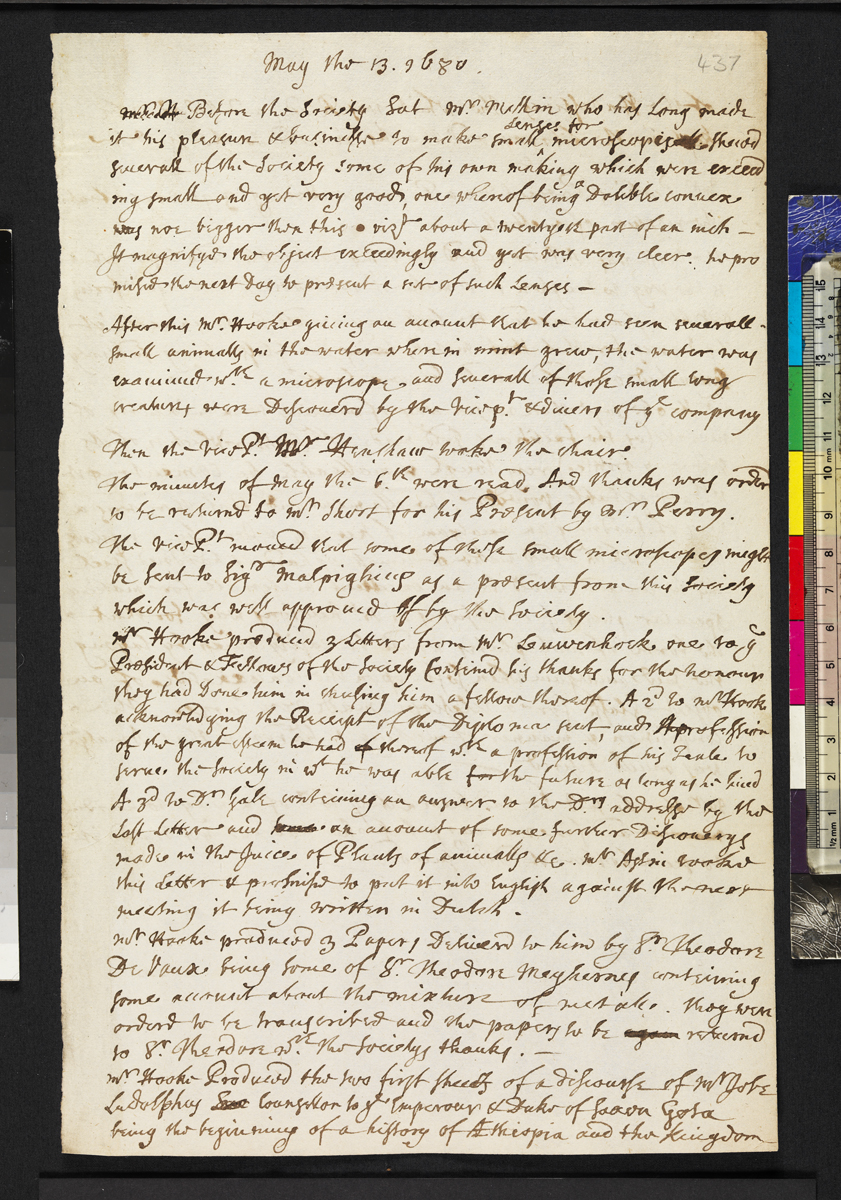 May the 13. 1680.
437
Before the Society Sat Mr. Mellin who has Long made
Lenses for
it his pleasure & businesse to make small microscopes shewd
severall of the Society some of his own making which were exceed
ing small and yet very good, one whereof being a Double convex
was not bigger then this • vizt about a twentyeth part of an inch -
It magnifyd the object exceedingly and yet was very cleer. he pro
misd the next Day to present a set of such Lenses -
After this Mr. Hooke giving an account that he had seen severall
small animalls in the water wherein mint grew, the water was
examined wth a microscope and severall of those small long
creatures were Discoverd by the vicept. & divers of ye company
Then the vicePt. Mr Henshaw tooke the chair
The minutes of May the 6.th were read. And thanks was orderd
to be returnd to Mr. Short for his Present by Mr. Perry.
The vicePt. moved that some of these small microscopes might
be sent to Sigr. Malpighius as a present from this Society
which was well approved off by the Society.
Mr. Hooke produced 3 Letters from Mr. Leuwenhoek one to ye
President & Fellowes of the Society Containd his thanks for the honour
they had Done him in chusing him a fellow thereof. A 2d to Mr Hooke
acknowledging the Receipt of the Diploma sent, and profession
of the great esteem he had thereof wth a profession of his Zeale to
serve the Society in wt he was able for the future as long as he lived
A 3d to Dr. Gale containing an answer to the Drs addresse by the
Last Letter and an account of some further Discoverys
made in the Juice of Plants of animalls &c. Mr Aston tooke
this Letter & promisd to put it into English against the next
meeting it being written in Dutch.
Mr. Hooke produced 3 Papers Deliverd to him by Sr. Theodore
De Vaux being some of Sr. Theodore Mayhernes containing
some account about the mixture of metalls. they were
orderd to be transcribed and the papers to be returnd
to Sr. Theodore wth the Societys thanks. -
Mr. Hooke Produced the two first sheets of a discourse of Mr Jobe
Ludolphus Counsellor to ye Emperour & Duke of Saxon Gota
being the beginning of a history of Æthiopia and the Kingdom